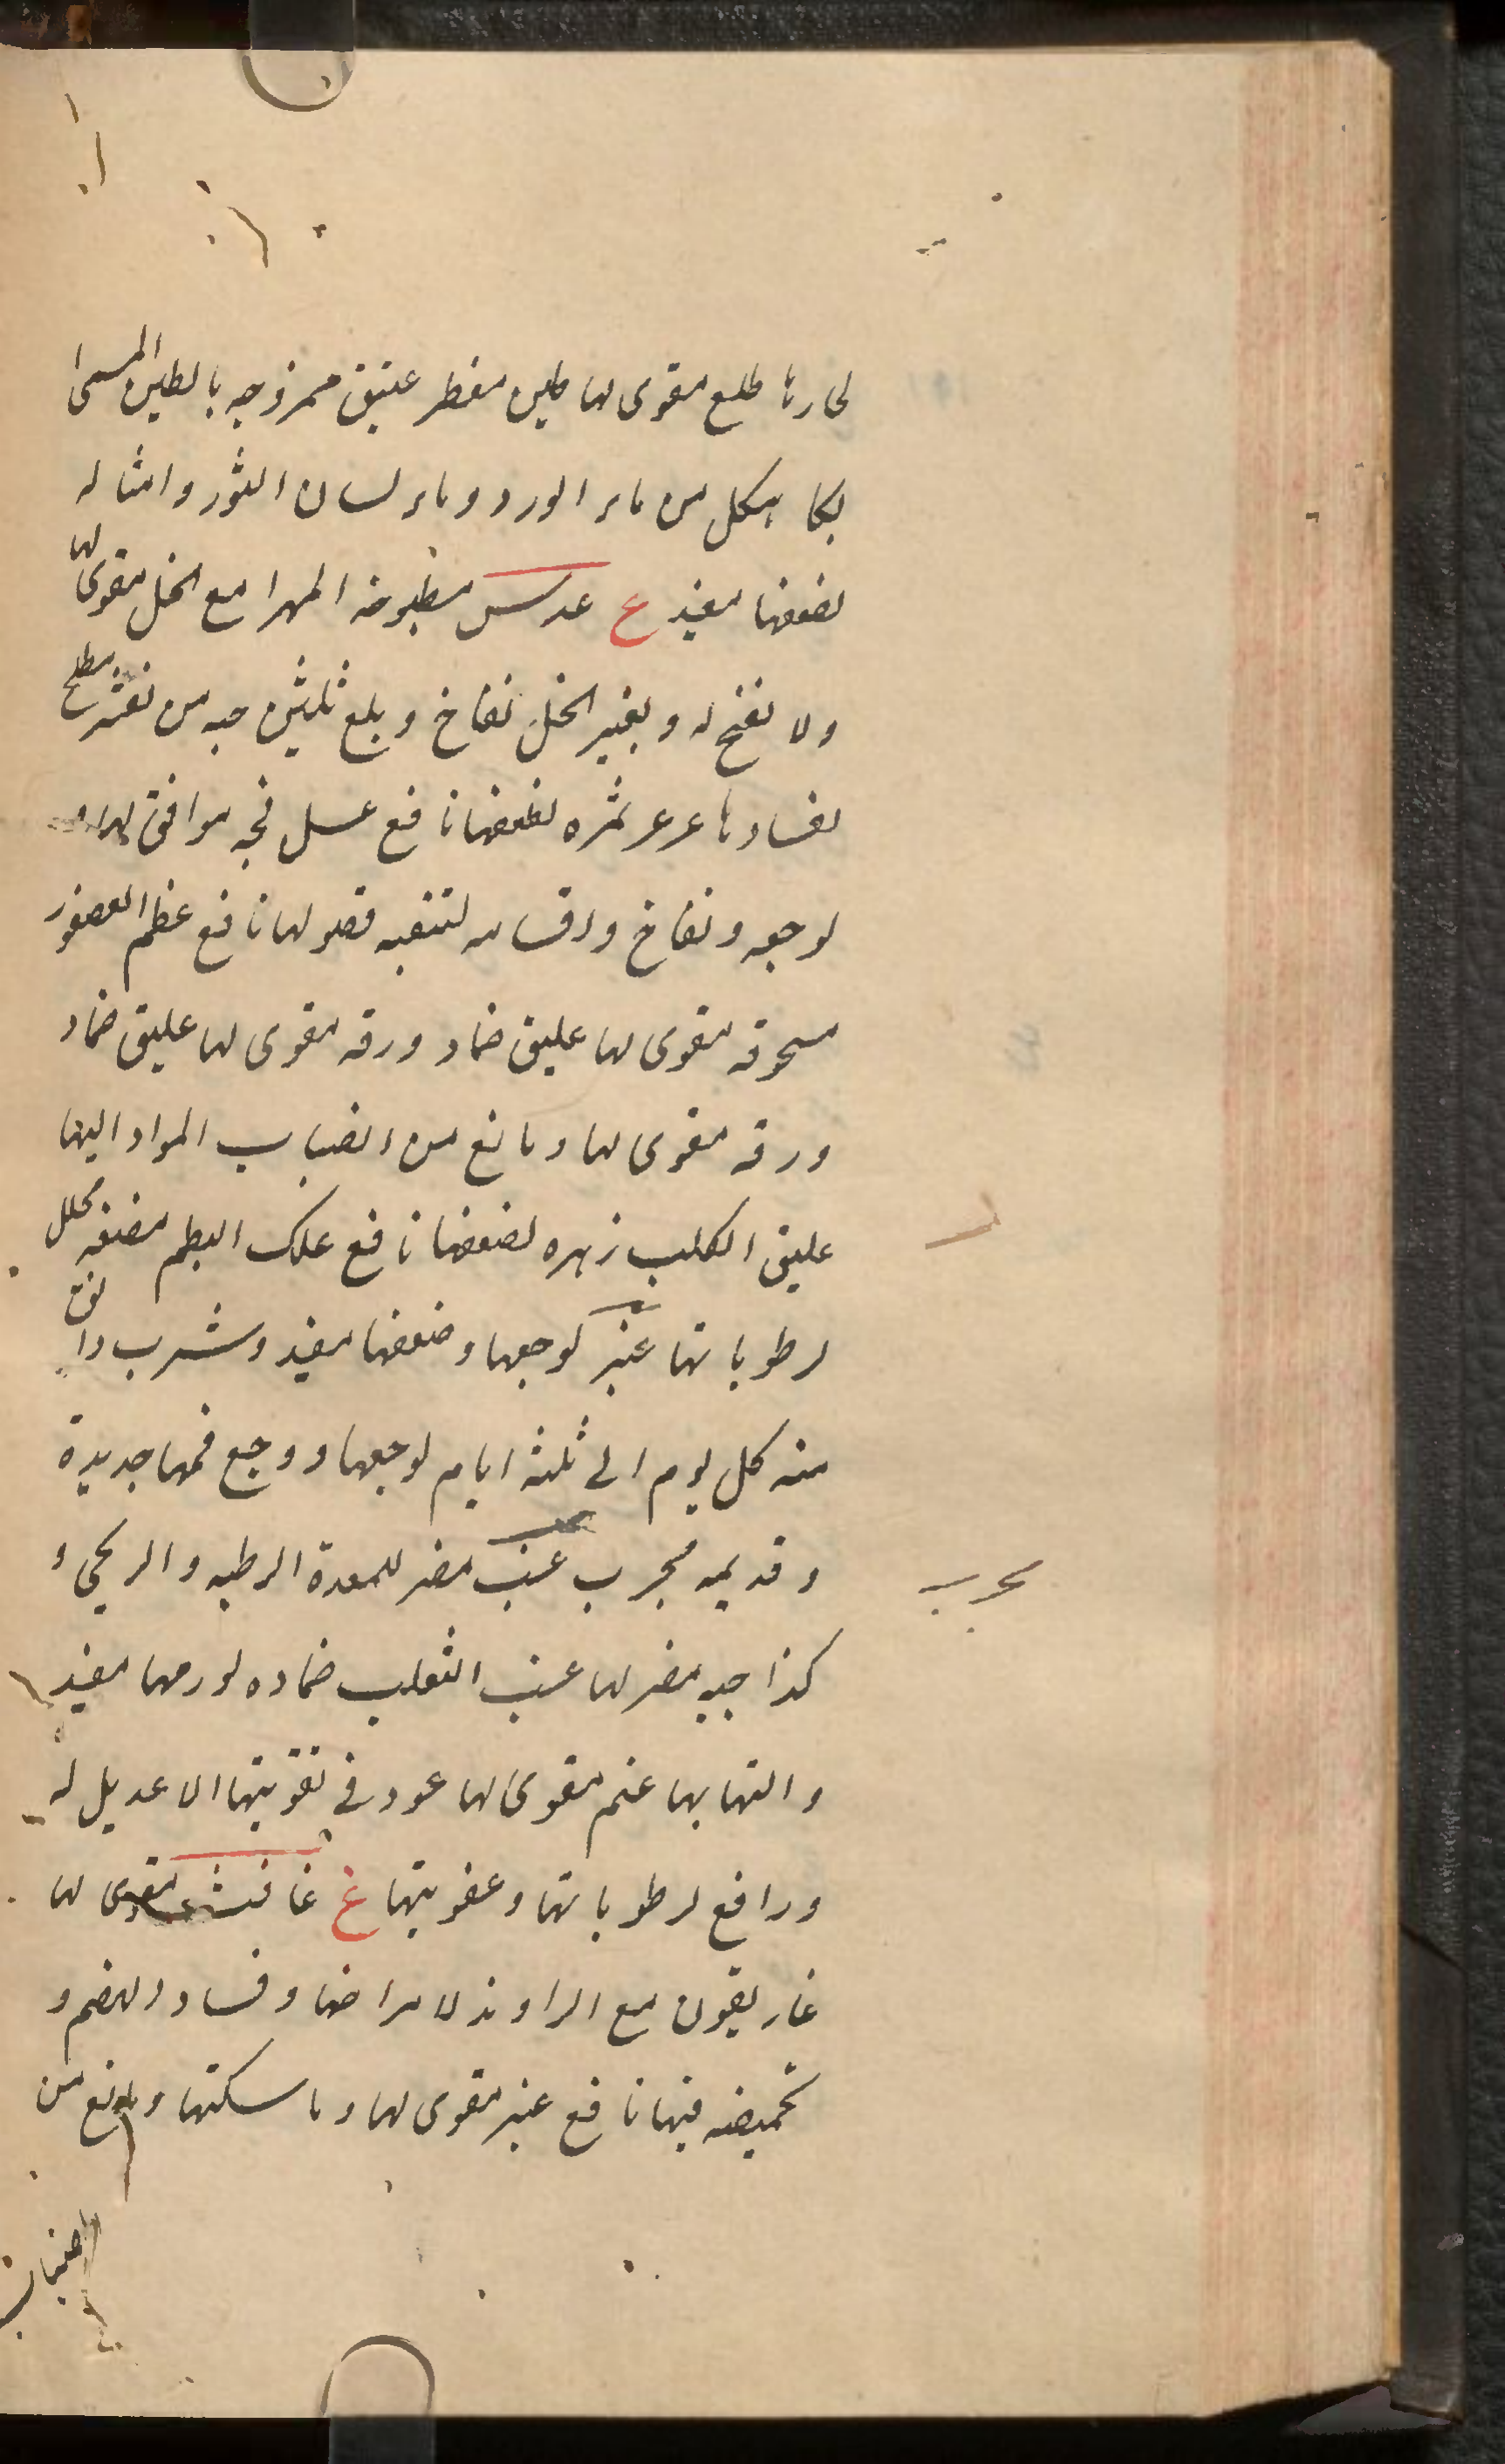 لحارها طلع مقوى لها طين مفطر عتيق ممزوجه بالطين المسمى
بكاهكل من ماء الورد وماء لسان الثور وامثاله
لضعفها مفيد ع عدس مطبوخه المهرا مع الخل مقوى لها
ولا نفخ له وبغير الخل نفاخ وبلع ثلثين حبه من مقشره مصلح
لفسادها عرعر ثمره لضعفها نافع عسل فجه موافق لها
لوجعه ونفاخ واقسامه لتنقيه فضولها نافع عظم العصفور
مسحوقه مقوى لها عليق ضماد ورقه مقوى لها عليق ضماد
ورقه مقوى لها ومانع من انصباب المواد اليها
عليق الكلب زهره لضعفها نافع علك البطم مضغه محلل
لرطوباتها عنبر لوجعها وضعفها مفيد وشرب دانق
منه كل يوم الى ثلثة ايام لوجعها ووجع فمها جديدة
وقديمه مجرب عنب مضر للمعدة الرطبه والريحى و
كذا حبه مضر لها عنب الثعلب ضماده لورمها مفيد
والتهابها عنم مقوى لها عود فى تقويتها لا عديل له
ورافع لرطوباتها وعفونتها غ غافث مقوى لها
غاريقون مع الراوند لامراضها وفساد الهضم و
تحميضه فيها نافع غبر مقوى لها وماسكتها ومانع من
مجرب